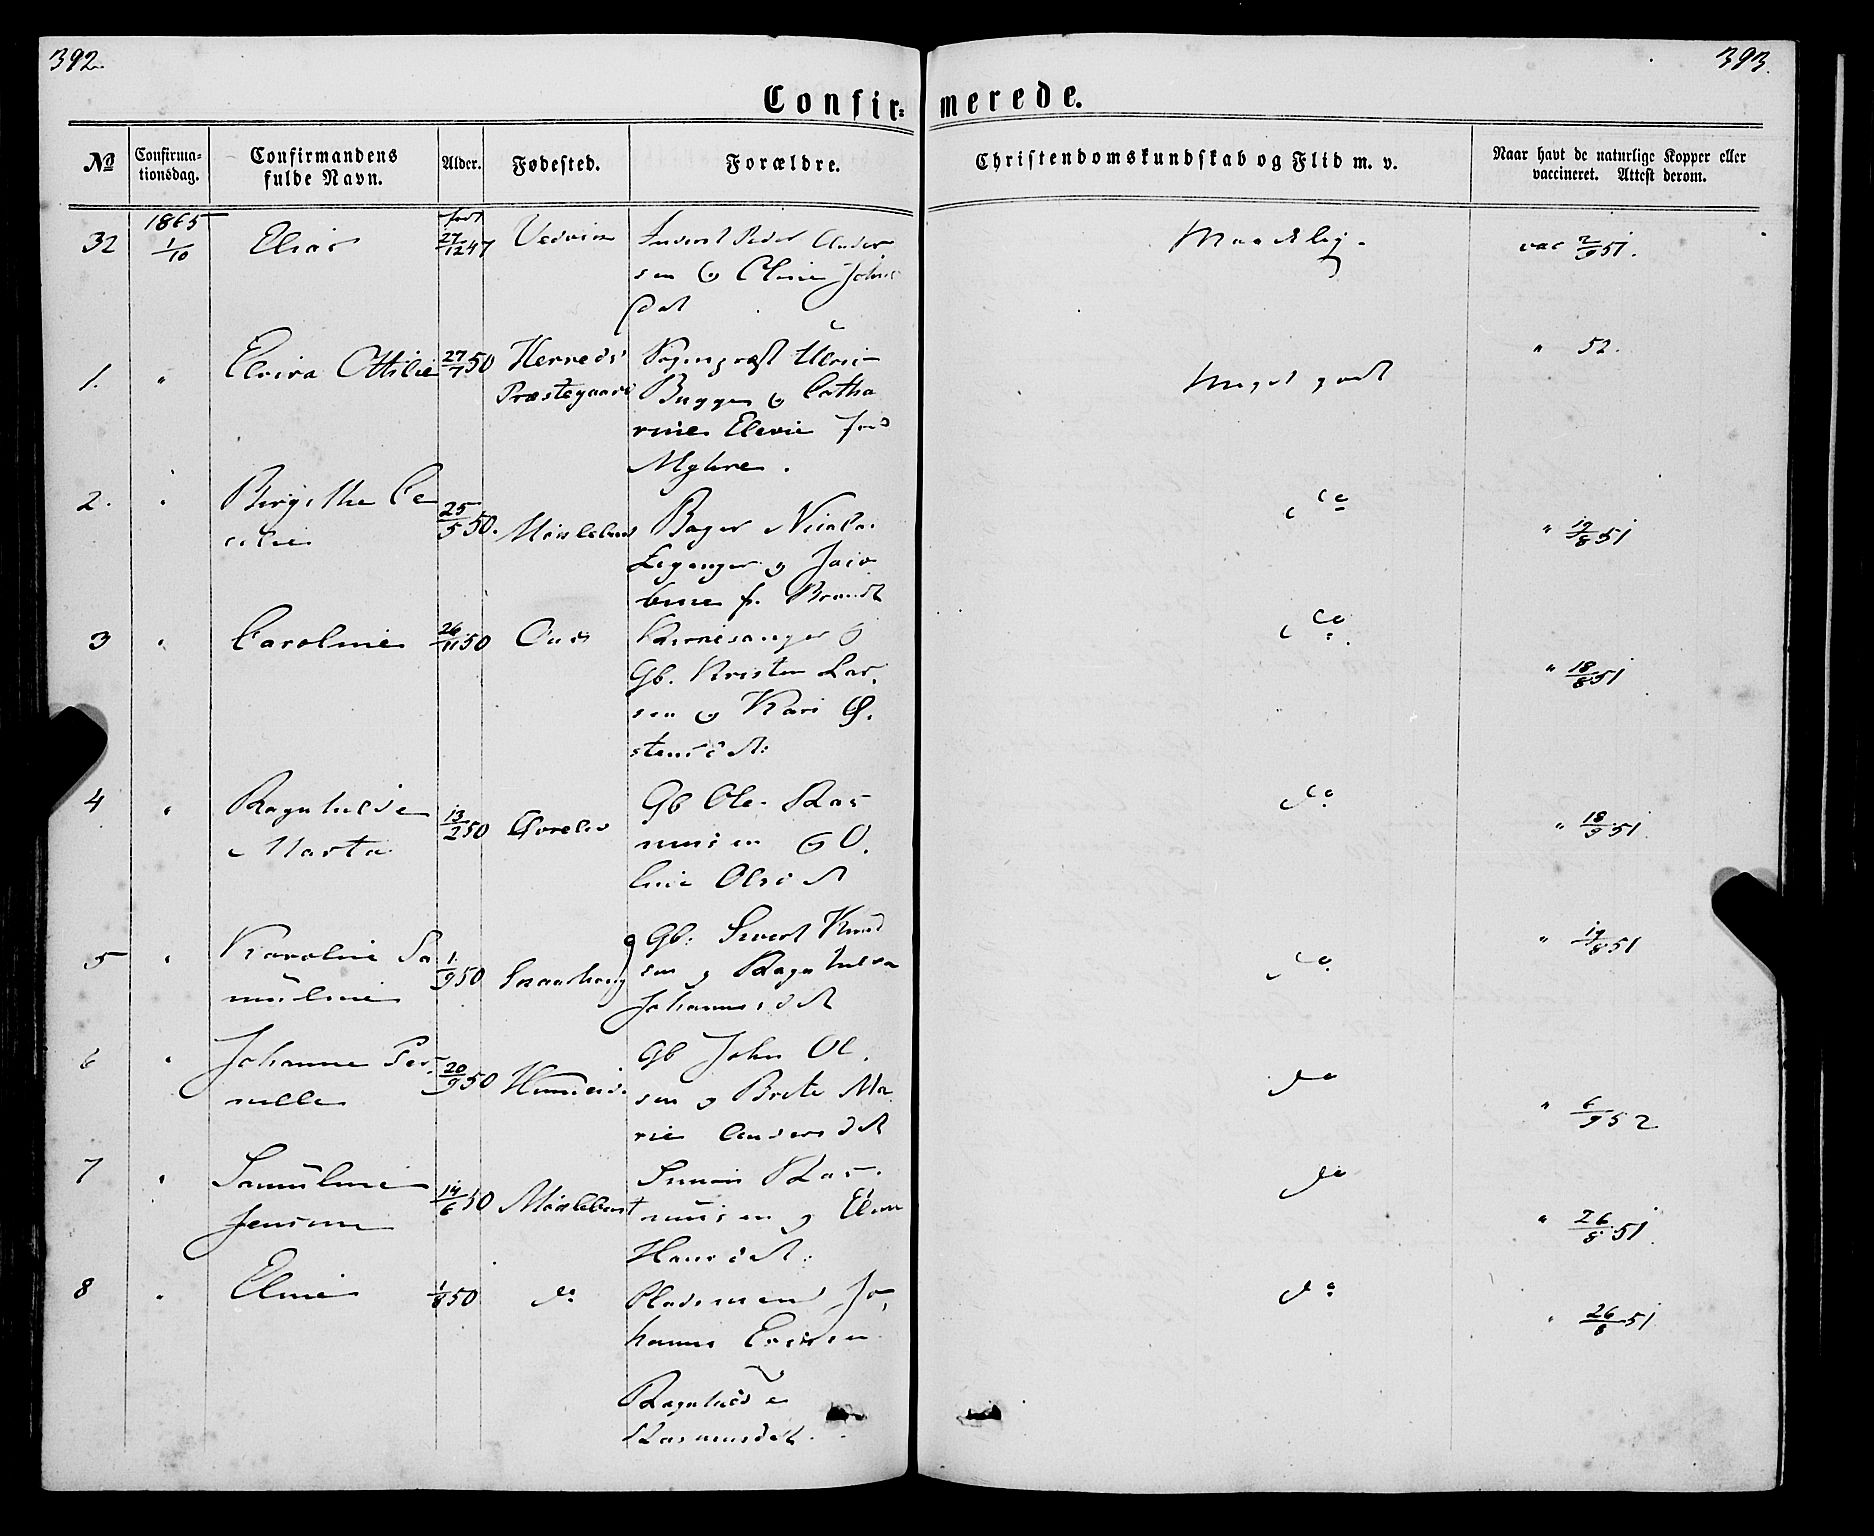 392.
393.
Confir= merede.
No
Confirma=
tionsdag.
Confirmandens
fulde Navn.
Alder.
Fødested.
Forældre.
Christendomskundskab og Flid m. v.
Naar havt de naturlige Kopper eller
vaccineret. Attest derom.
32 1865 1/10 Elias født 27/12 47 Vedvik Peder Ander
sen og Oline Johns
dat
Maadelig. vac 2/9 51.
1. " Elvira Ottilie 27/7 50 Herreds
Præstegaard
Sognepræst
Bugge og Catha
rine født
Myhre.
Meget godt " 52.
2. " Birgithe Ce
cilie
25/5 50.
Bager Nicolai
Leganger og Jaco
bine f. Brandt
do " 19/8 51
3 " Caroline 26/11 50 Kirkesanger og
Gb. Kristen Lar
sen og Kari Ø.
stensdt:
do " 18/8 51
4 " Ragnhilde
Marta
13/2 50
Gb Ole Ras
musen og O.
line Olsdt
do " 18/9 51
5 " Karoline Sa
muline
1/9 50
Gb: Sivert Knud
sen og Ragnhilda
Johannesdt
do " 19/8 51
6 " Johanne Per
nelle
20/9 50
Gb John Ol.
sen og Brite Ma
rie Andersdt
do " 6/9 52
7 " Samuline
Jensine
14/6 50
Simon Ras
musen og Elen
Hansdt:
do " 26/8 51.
8 " Eline 1/8 50 do Pladsmand Jo
hannes
Ragnhild
Rasmusdt.
do " 26/8 51